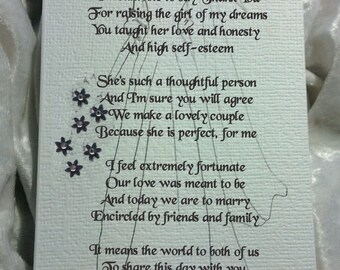 For raising the girl of my dreams
You taught her love and honesty
And high self-esteem
She's such a thoughtful person
And I'm sure you will agree
We make a lovely couple
Because she is perfect, for me
I feel extremely fortunate
Our love was meant to be
And today we are to marry
Encircled by friends and family
It means the world to both of us
To share this day with you